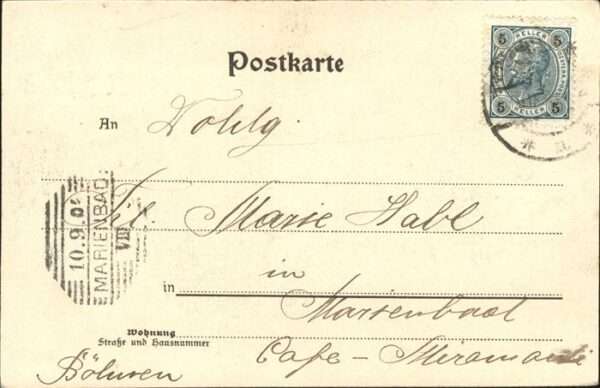 5 HELLER 5
5 HELLER 5
Postkarte
An Wohlg.
Frl. Marie Habl
in
in Marienbad
Wohnung
Straße und Hausnummer
Cafe - Miramonti
Böhmen
10.9.0
MARIENBAD
VIII